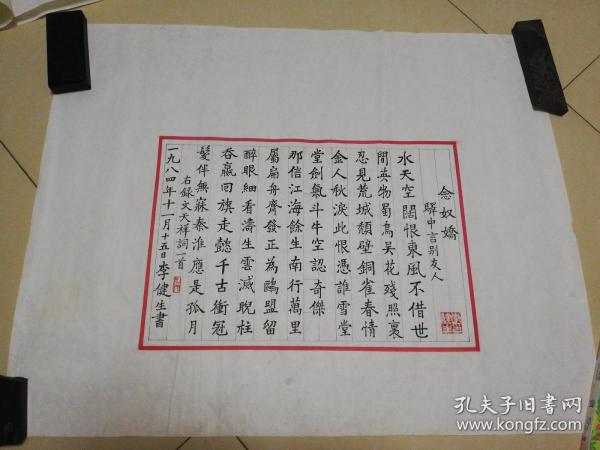 念奴嬌
驛中言别友人
水天空闊恨東風不借世
間英物蜀鳥吴花殘照裏
忍見荒城頽壁銅雀春情
金人秋淚此恨憑誰雪堂
堂劍氣斗牛空認奇傑
那信江海餘生南行萬里
屬扁舟齊發正為鷗盟留
醉眼細看濤生雲滅睨柱
吞嬴回旗走懿千古衝冠
髮伴無寐秦淮應是孤月
右録文天祥詞一首
一九八四年十一月十五日李健生書
孔夫子旧书网
www.kongfz.com